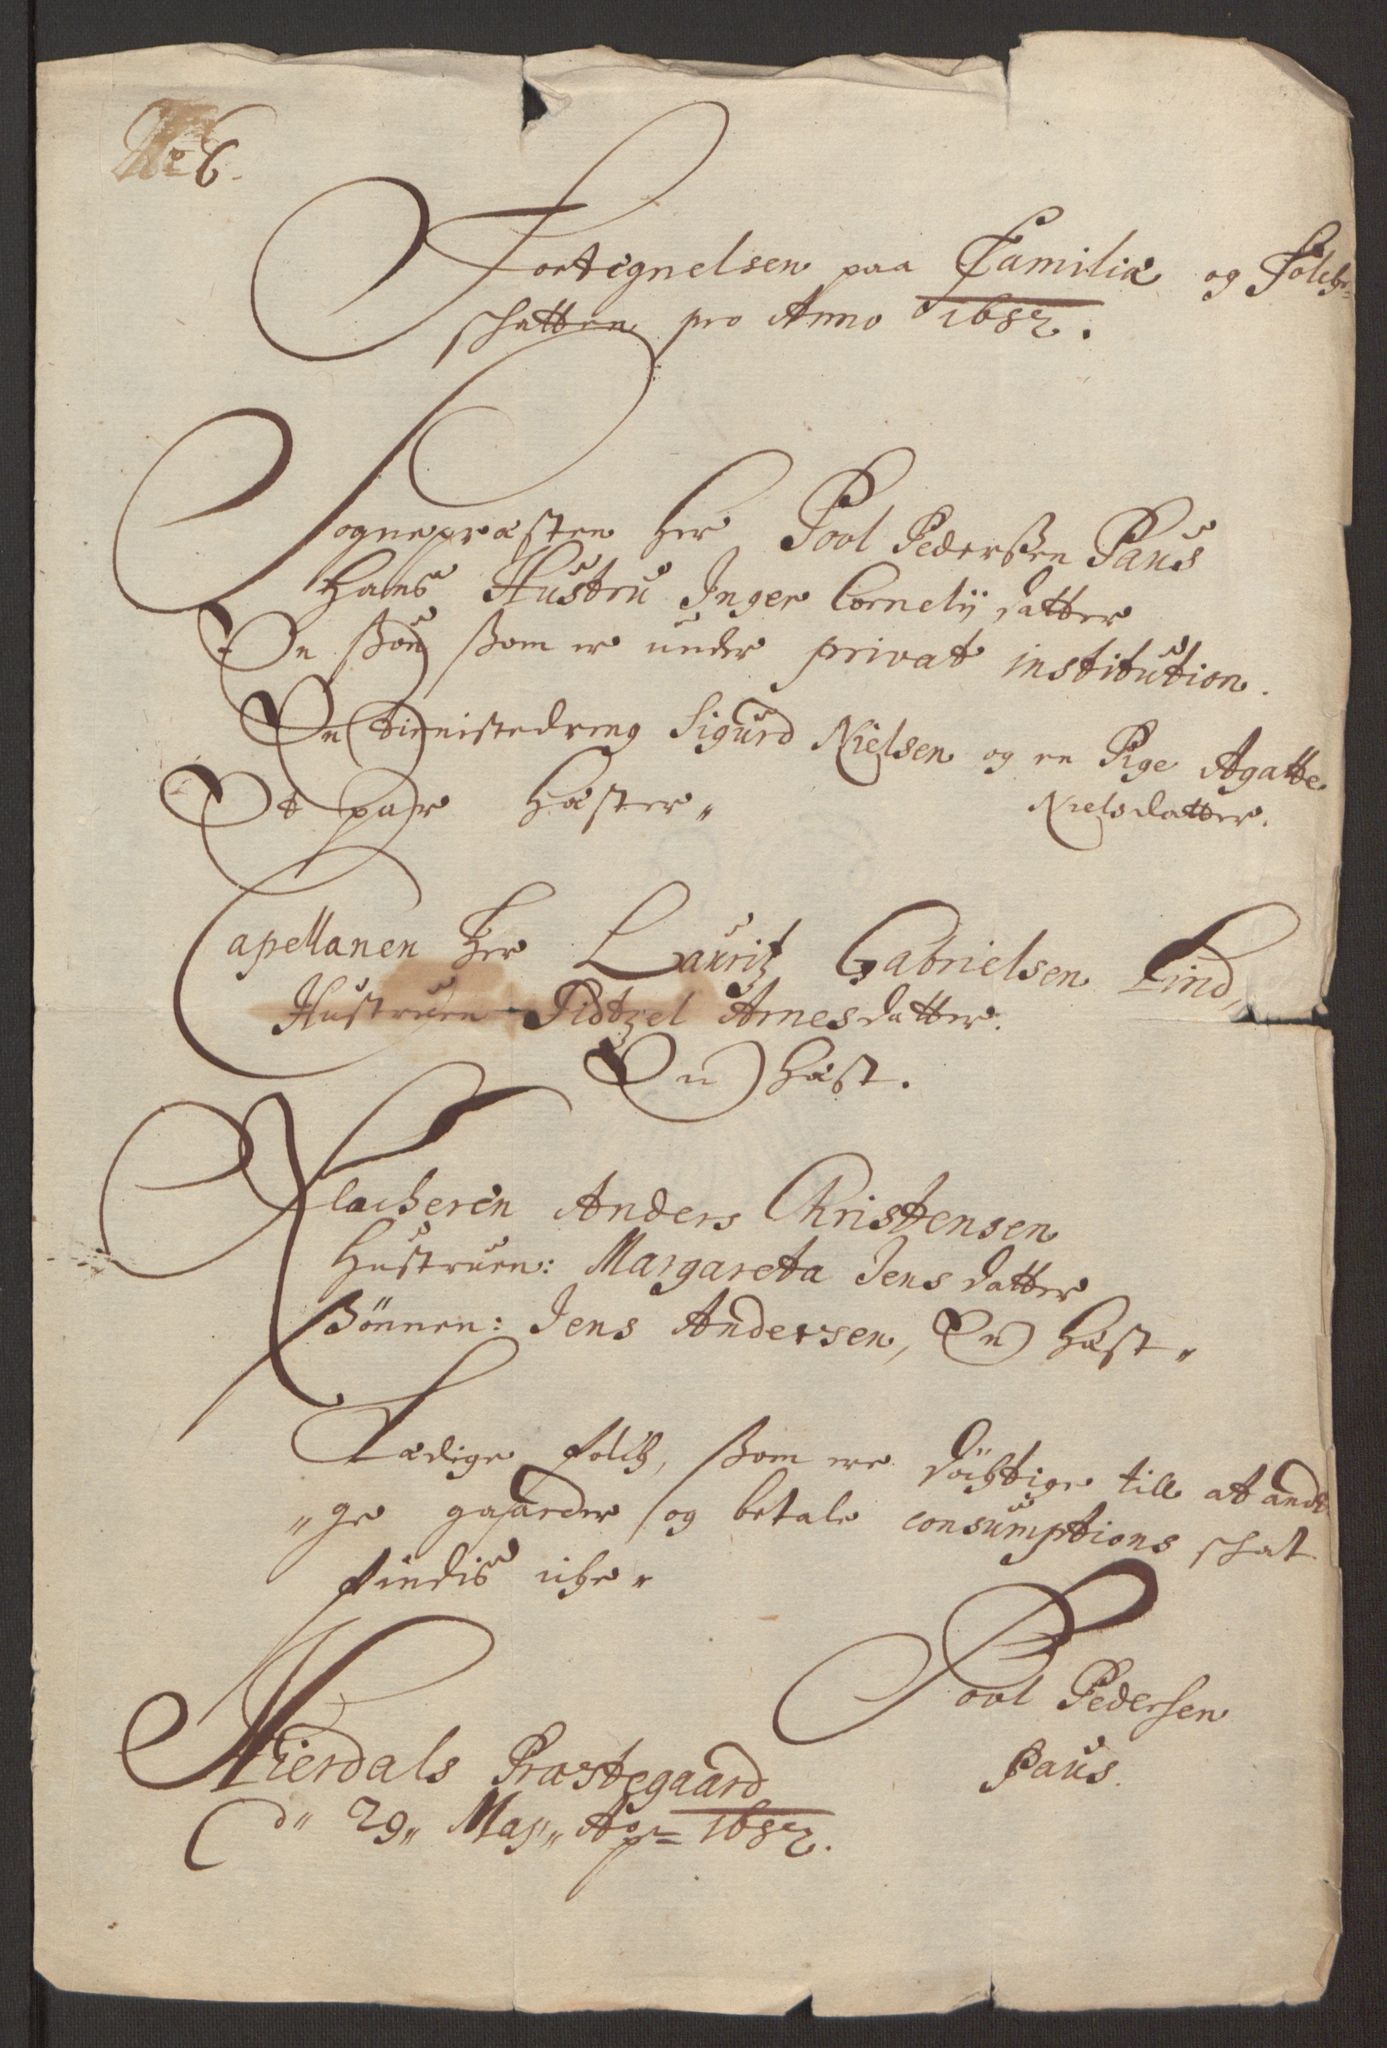 No 6.
Fortegnelsen paa Familie og Folche
schatten pro Anno 1682.
Sognepræsten Her Povl Pederßen Paus
Hans Hustru Inger Cornelij datter
En ßøn ßom er under privat institution.
En tienistedreng Sigurd Nielsen og en Pige Agatte
Et par Hæster„ Nielsdatter.
Capellanen Her Lauritz Gabrielsen Lind,
Hustruen Pidtzel Arnesdatter.
En Hæst.
Klocheren Anders Christensen
Hustruen: Margareta Jens datter
ßönnen: Jens Andersen, En Hæst„
Lædige folch, ßom ere döchtige till at andt
„ge gaarder og betale consumptions schat
findis iche„
Povl Pedersen
Paus.
Hierdals Præstegaard
d„ 29„ Maj„ Ao 1682.